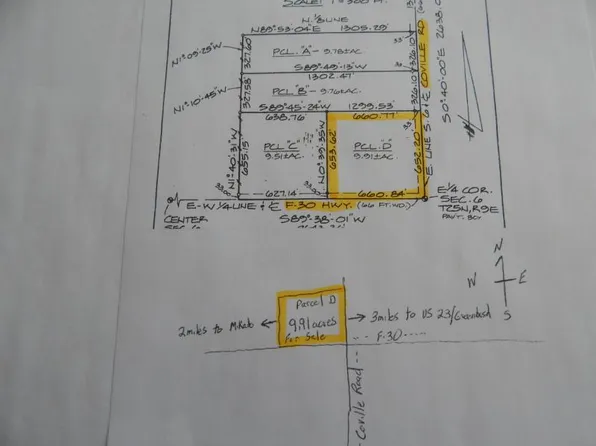 SCALE: 1"=300 FT.
N. 1/8 LINE
N89°-53'-04"E 1305.29'
N1°-09'-29"W
327.60
PCL. "A" - 9.78±AC.
33'
326.10
S89°-49'-13"W
1302.47'
N1°-10'-45"W
327.58
PCL. "B" - 9.76±AC.
326.10
S89°-45'-24"W 1299.53'
638.76' 660.77'
33'
N1°-40'-31"W
655.15'
PCL. "C"
9.51±AC.
N0°-39'-35"W
653.62'
PCL. "D"
9.91±AC.
652.20'
E. LINE S. 6 & ℄ COVILLE RD
S0°-40'-00"E
33.00
627.14'
33.00
660.84'
E-W 1/4 LINE & ℄ F-30 HWY. (66 FT. WD.)
CENTER
S89°-38'-01"W
E 1/4 COR.
SEC. 6
T25N, R9E
N
W E
S
Parcel D
9.91 acres
For Sale
2 miles to Mikado
3 miles to US 23/Greenbush
F-30
Coville Road